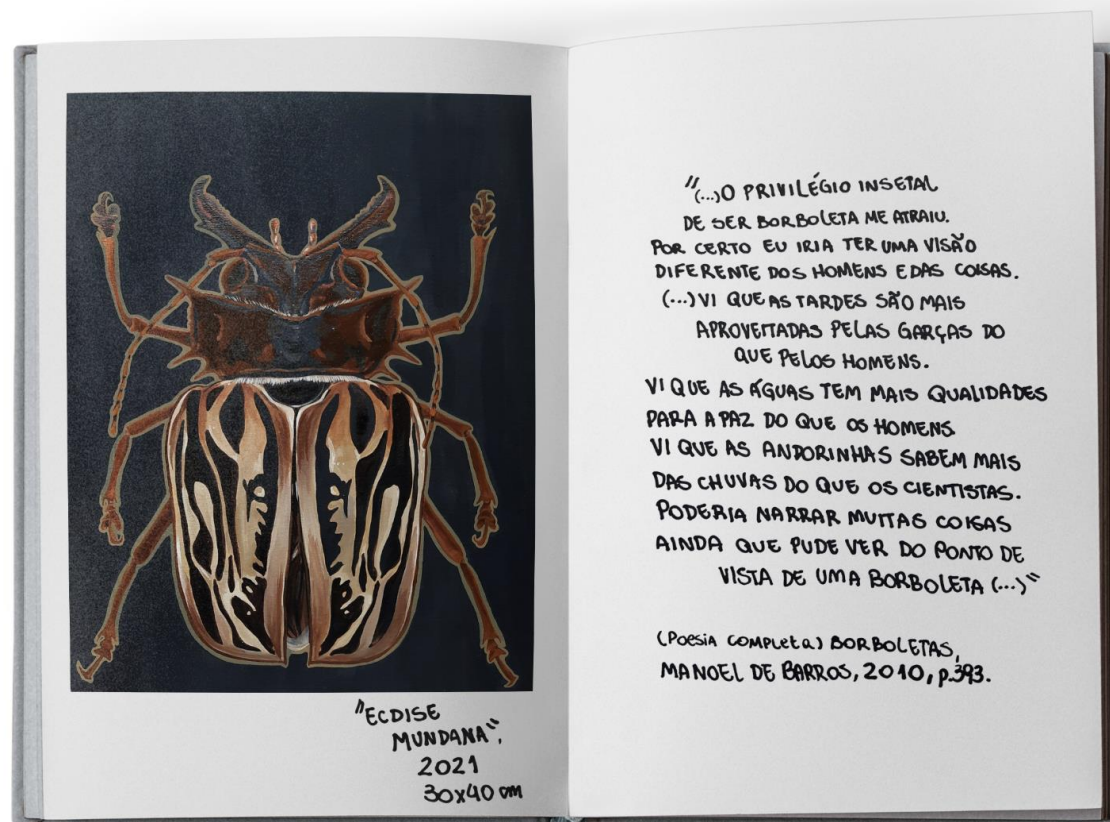 "ECDISE
MUNDANA",
2021
30x40 cm
"(...)O PRIVILÉGIO INSETAL
DE SER BORBOLETA ME ATRAIU.
POR CERTO EU IRIA TER UMA VISÃO
DIFERENTE DOS HOMENS E DAS COISAS.
(...) VI QUE AS TARDES SÃO MAIS
APROVEITADAS PELAS GARÇAS DO
QUE PELOS HOMENS.
VI QUE AS ÁGUAS TEM MAIS QUALIDADES
PARA A PAZ DO QUE OS HOMENS
VI QUE AS ANDORINHAS SABEM MAIS
DAS CHUVAS DO QUE OS CIENTISTAS.
PODERIA NARRAR MUITAS COISAS
AINDA QUE PUDE VER DO PONTO DE
VISTA DE UMA BORBOLETA (...)"
(Poesia completa) BORBOLETAS,
MANOEL DE BARROS, 2010, p.393.